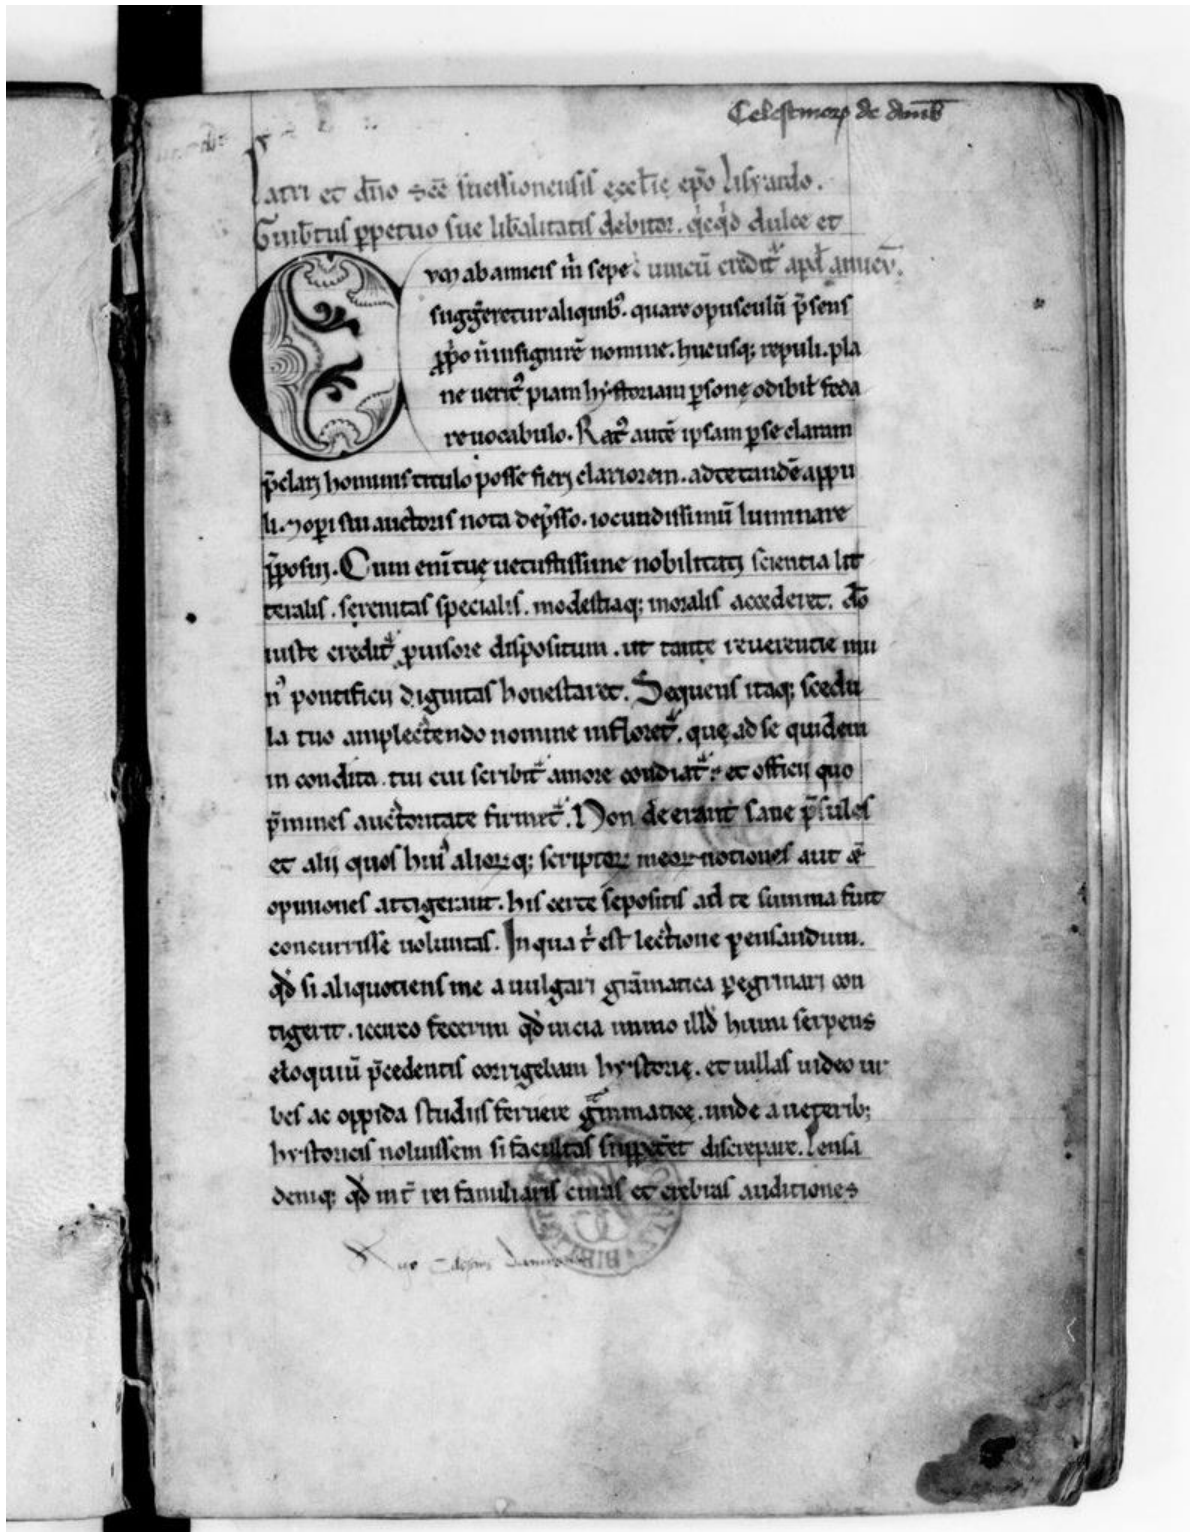 Celestinorꝝ de Amb̄
Patri et dño sc̄e suessionensis ęcclię ep̄o Lisyardo.
Guibtus ꝑpetuo sue libalitatis debitor. qicqd dulce et
unicū credit apd amicū.
Cum ab amicis m̄ sepe
suggeretur aliquib;. quare opusculū p̄sens
ꝓpo ñ insignirē nomine. hucusq; repuli. pla
ne uerit piam hystoriam ꝑsonę odibil feda
re uocabulo. Rat autē ipsam ꝑ se claram
p̄clari hominis titulo posse fieri clariorem. ad te tandē appu
li. ⁊ opi sui auctoris nota dep̄sso. iocundissimū luminare
p̄posui. Cum eni tuę uetustissime nobilitati scientia lit
teralis. serenitas specialis. modestiaq; moralis accederet. do
iuste credit ꝓuisore dispositum. ut tantę reuerentie mu
n pontificii dignitas honestaret. Sequens itaq; scedu
la tuo amplectendo nomine infloret. quę ad se quidem
in condita tui cui scribit amore condiat. et officii quo
p̄mines auctoritate firmet. Non deerant sane p̄sules
et alii quos hui aliorꝝq; scriptorꝝ meorꝝ notiones aut
opiniones attigerant. his certe sepositis ad te summa fuit
concurrisse uoluntas. In qua t est lectione pensandum.
qd si aliquotiens me a uulgari grāmatica ꝑegrinari con
tigerit. iccirco fecerim qd uicia immo illd humi serpens
eloquiū p̄cedentis corrigebam hystorię. et uillas uideo ur
bes ac oppida studiis feruere grāmaticę. unde a ueterib;
hystoricis noluissem si facultas suppeteret discrepare. Pensa
deniq; qd int rei familiaris curas et crebras auditiones